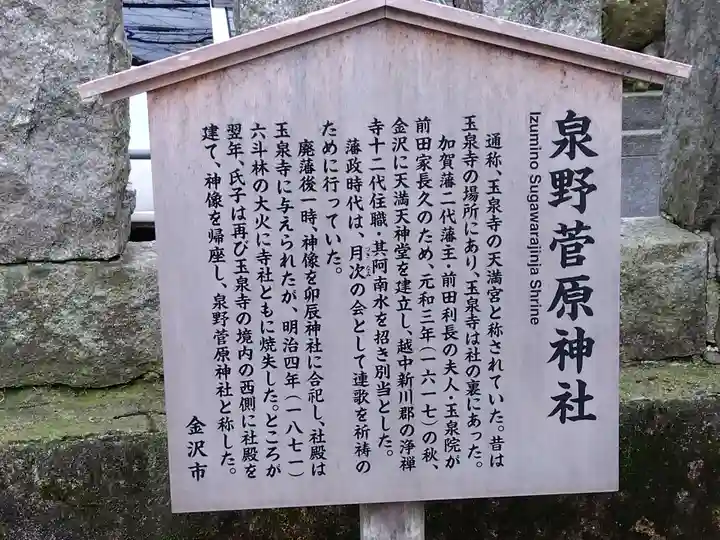 泉野菅原神社
Izumino Sugawarajinja Shrine
通称、玉泉寺の天満宮と称されていた。昔は
玉泉寺の場所にあり、玉泉寺は社の裏にあった。
加賀藩二代藩主・前田利長の夫人・玉泉院が
前田家長久のため、元和三年(一六一七)の秋、
金沢に天満天神堂を建立し、越中新川郡の浄禅
寺十二代住職・其阿南水を招き別当とした。
藩政時代は、月次の会として連歌を祈祷の
ために行っていた。
廃藩後一時、神像を卯辰神社に合祀し、社殿は
玉泉寺に与えられたが、明治四年(一八七一)
六斗林の大火に寺社ともに焼失した。ところが
翌年、氏子は再び玉泉寺の境内の西側に社殿を
建て、神像を帰座し、泉野菅原神社と称した。
金沢市